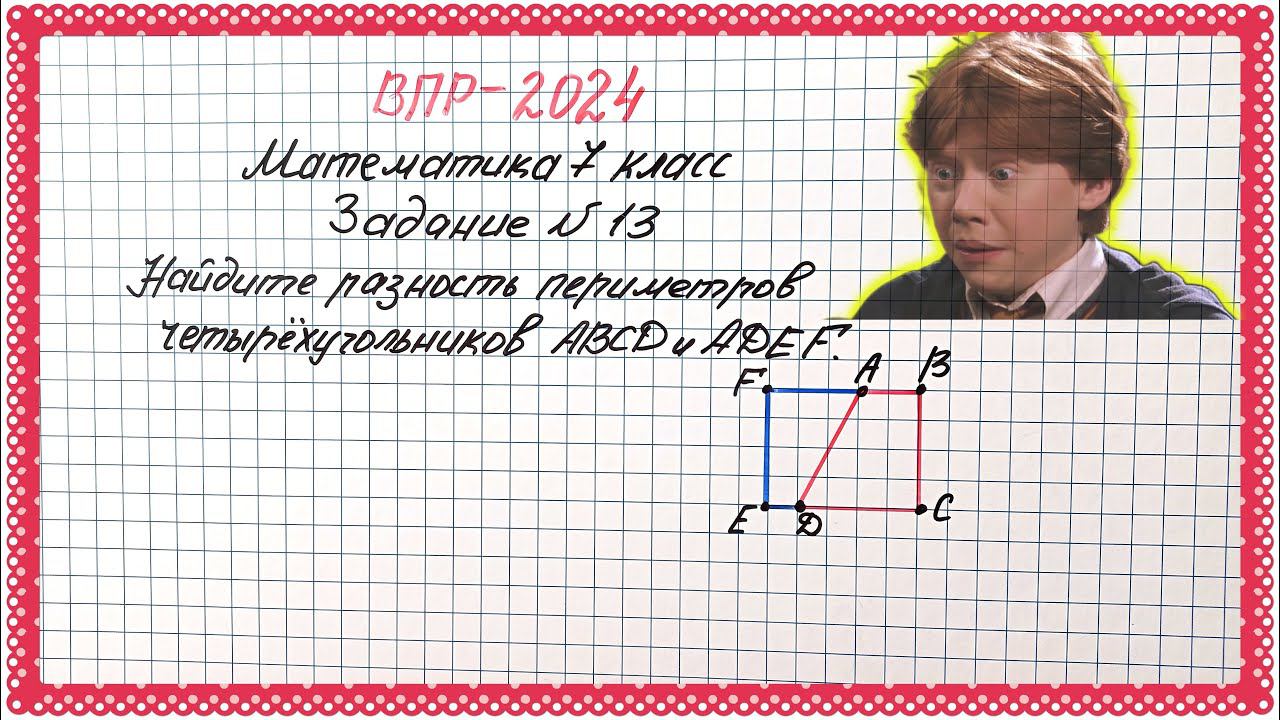 ВПР-2024
Математика 7 класс
Задание № 13
Найдите разность периметров
четырёхугольников ABCD и ADEF.
F A B
E D C